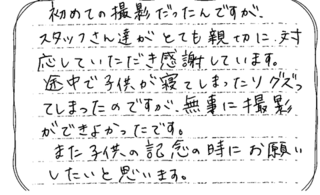 初めての撮影だったんですが、
スタッフさん達がとても親切に、対
応していただき感謝しています。
途中で子供が寝てしまったりグズっ
てしまったのですが、無事に撮影
ができよかったです。
また子供の記念の時にお願い
したいと思います。